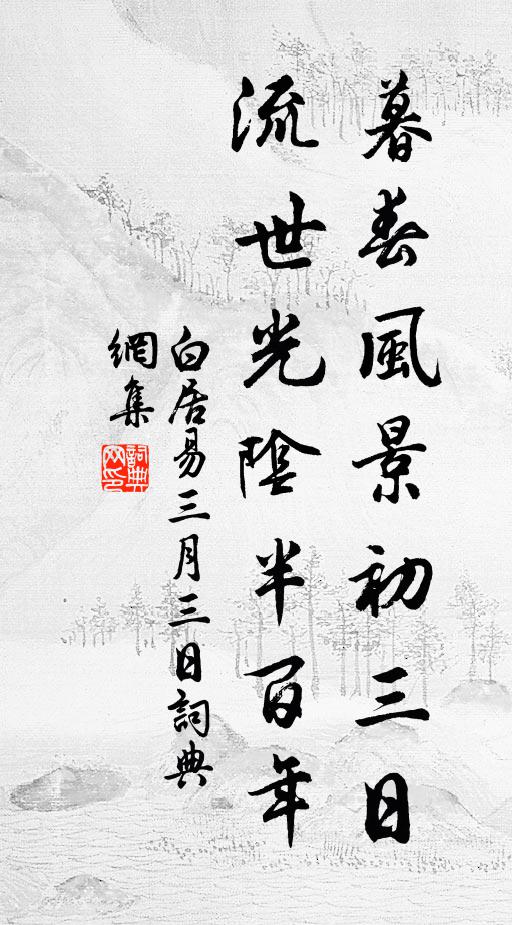 暮春風景初三日
流世光陰半百年
白居易三月三日詞典
網集
詞典网印